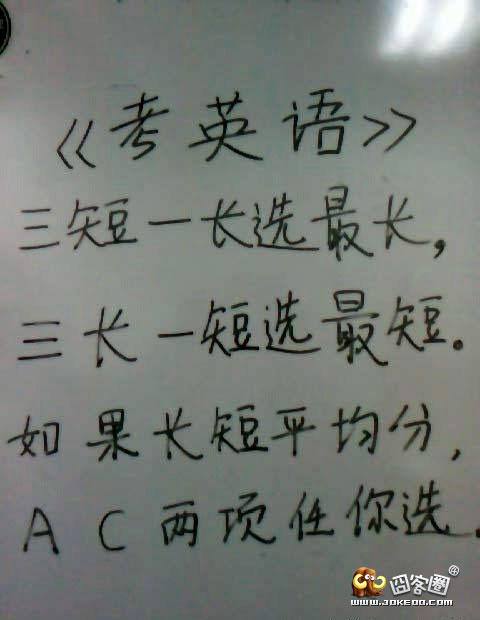 《考英语》
三短一长选最长,
三长一短选最短。
如果长短平均分,
A C 两项任你选.
囧客圈
www.JOKEOO.com